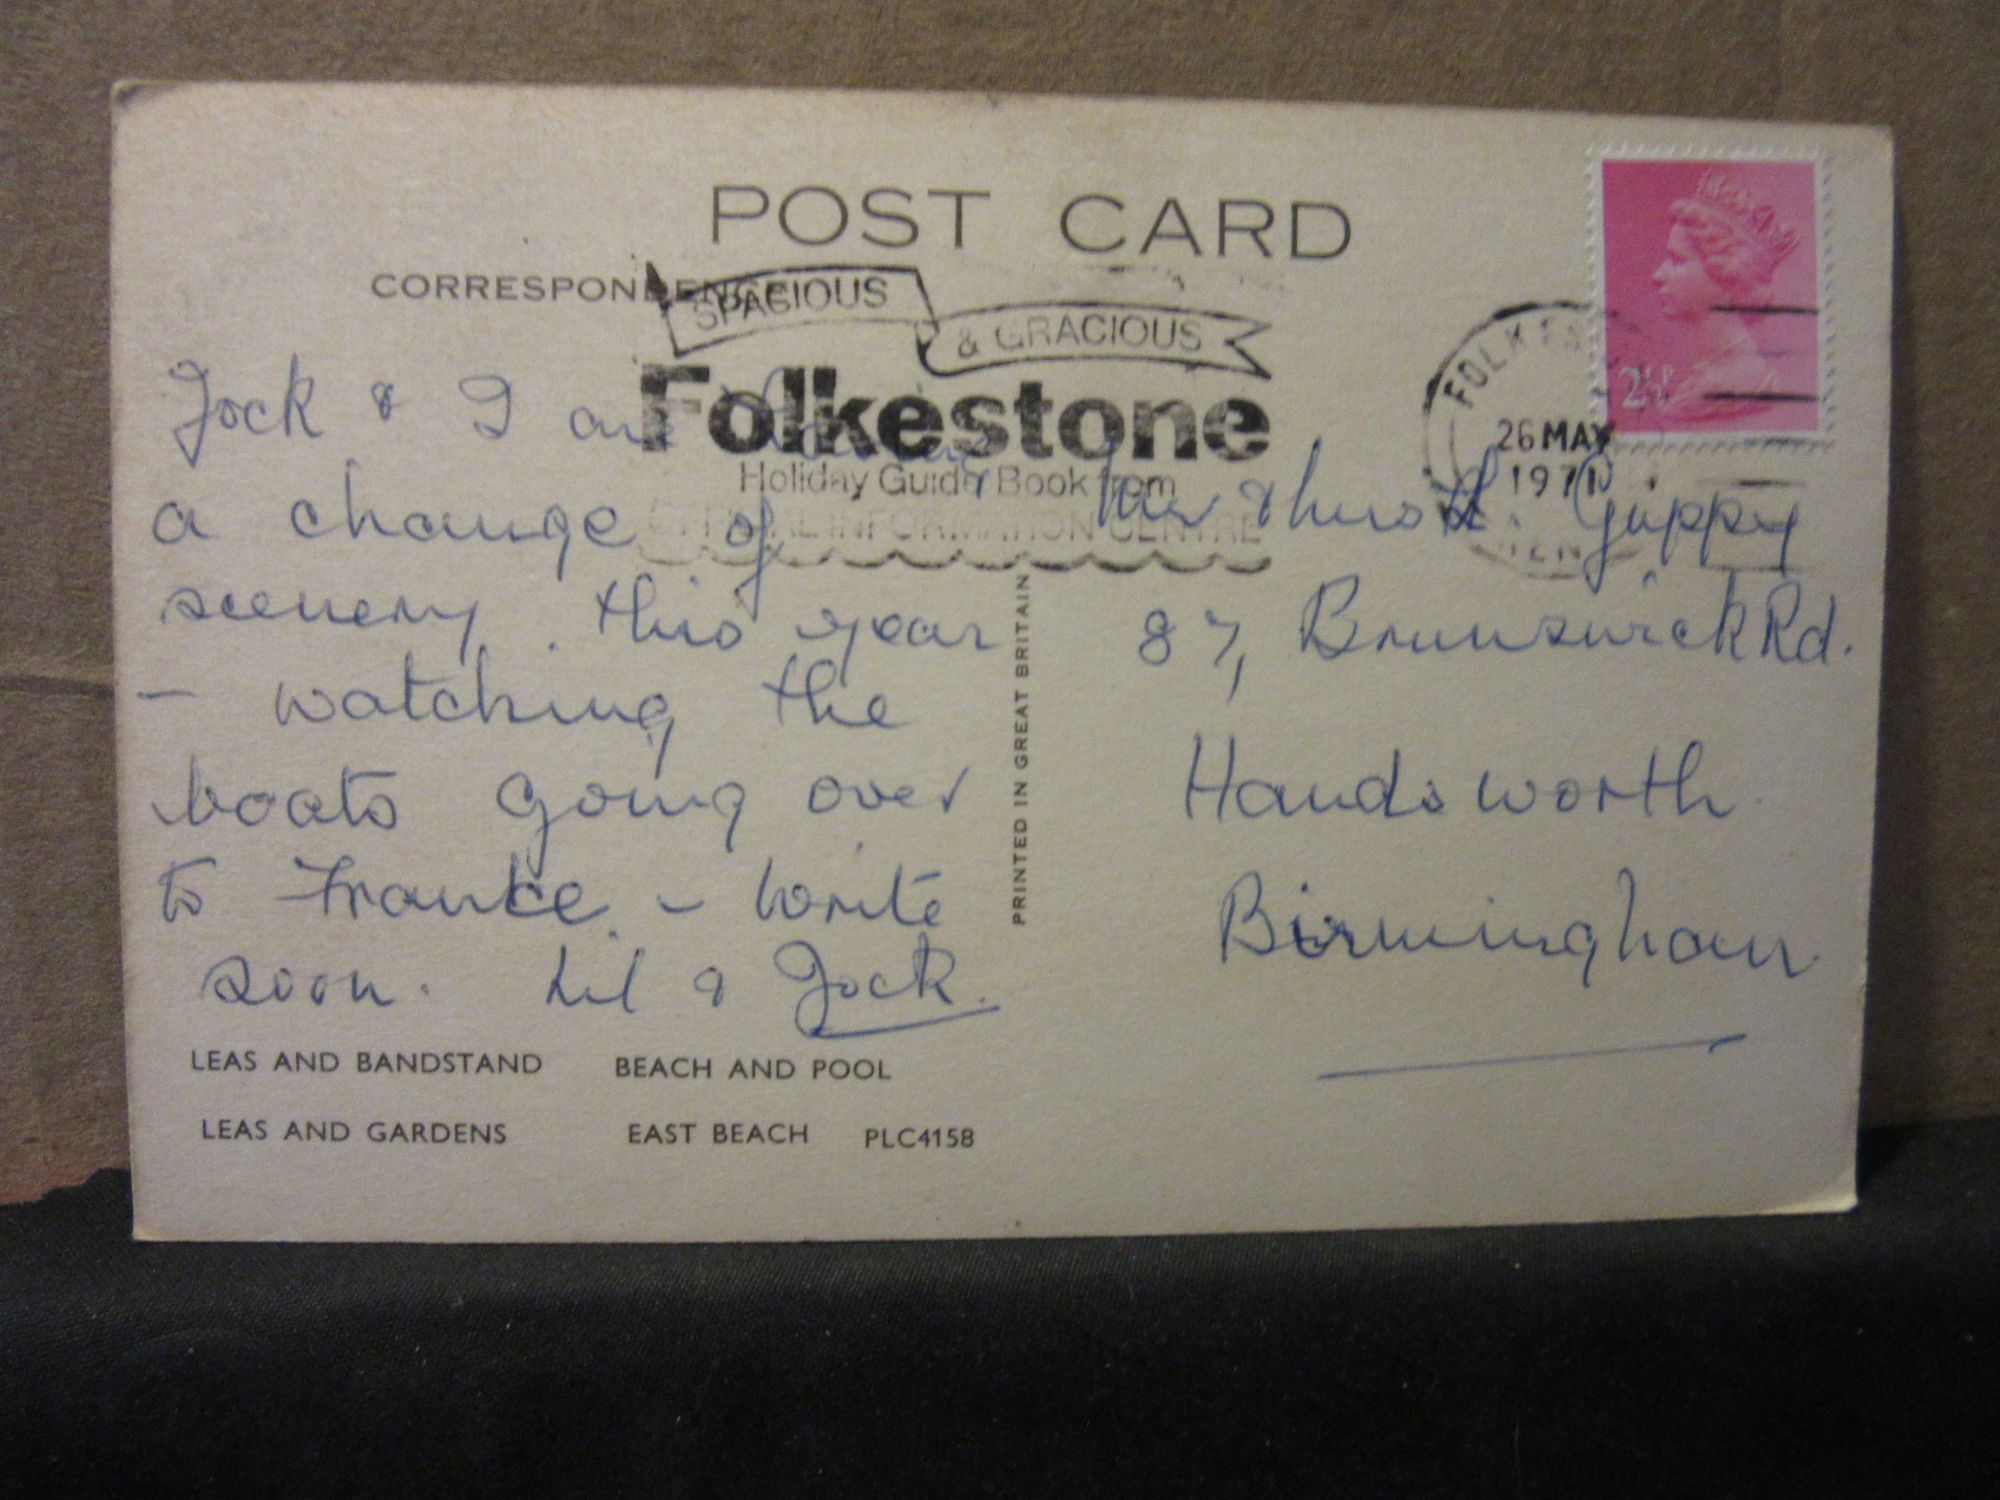 POST CARD
CORRESPONDENCE
SPACIOUS
& GRACIOUS
Folkestone
Holiday Guide Book from
INFORMATION CENTRE
FOLKES
26 MAY
1971
2½P
Jock & I are having
a change of
scenery this year
- watching the
boats going over
to France - Write
soon. Lil & Jock.
Mr & Mrs H. Guppy
87, Brunswick Rd.
Handsworth
Birmingham
PRINTED IN GREAT BRITAIN
LEAS AND BANDSTAND BEACH AND POOL
LEAS AND GARDENS EAST BEACH PLC4158